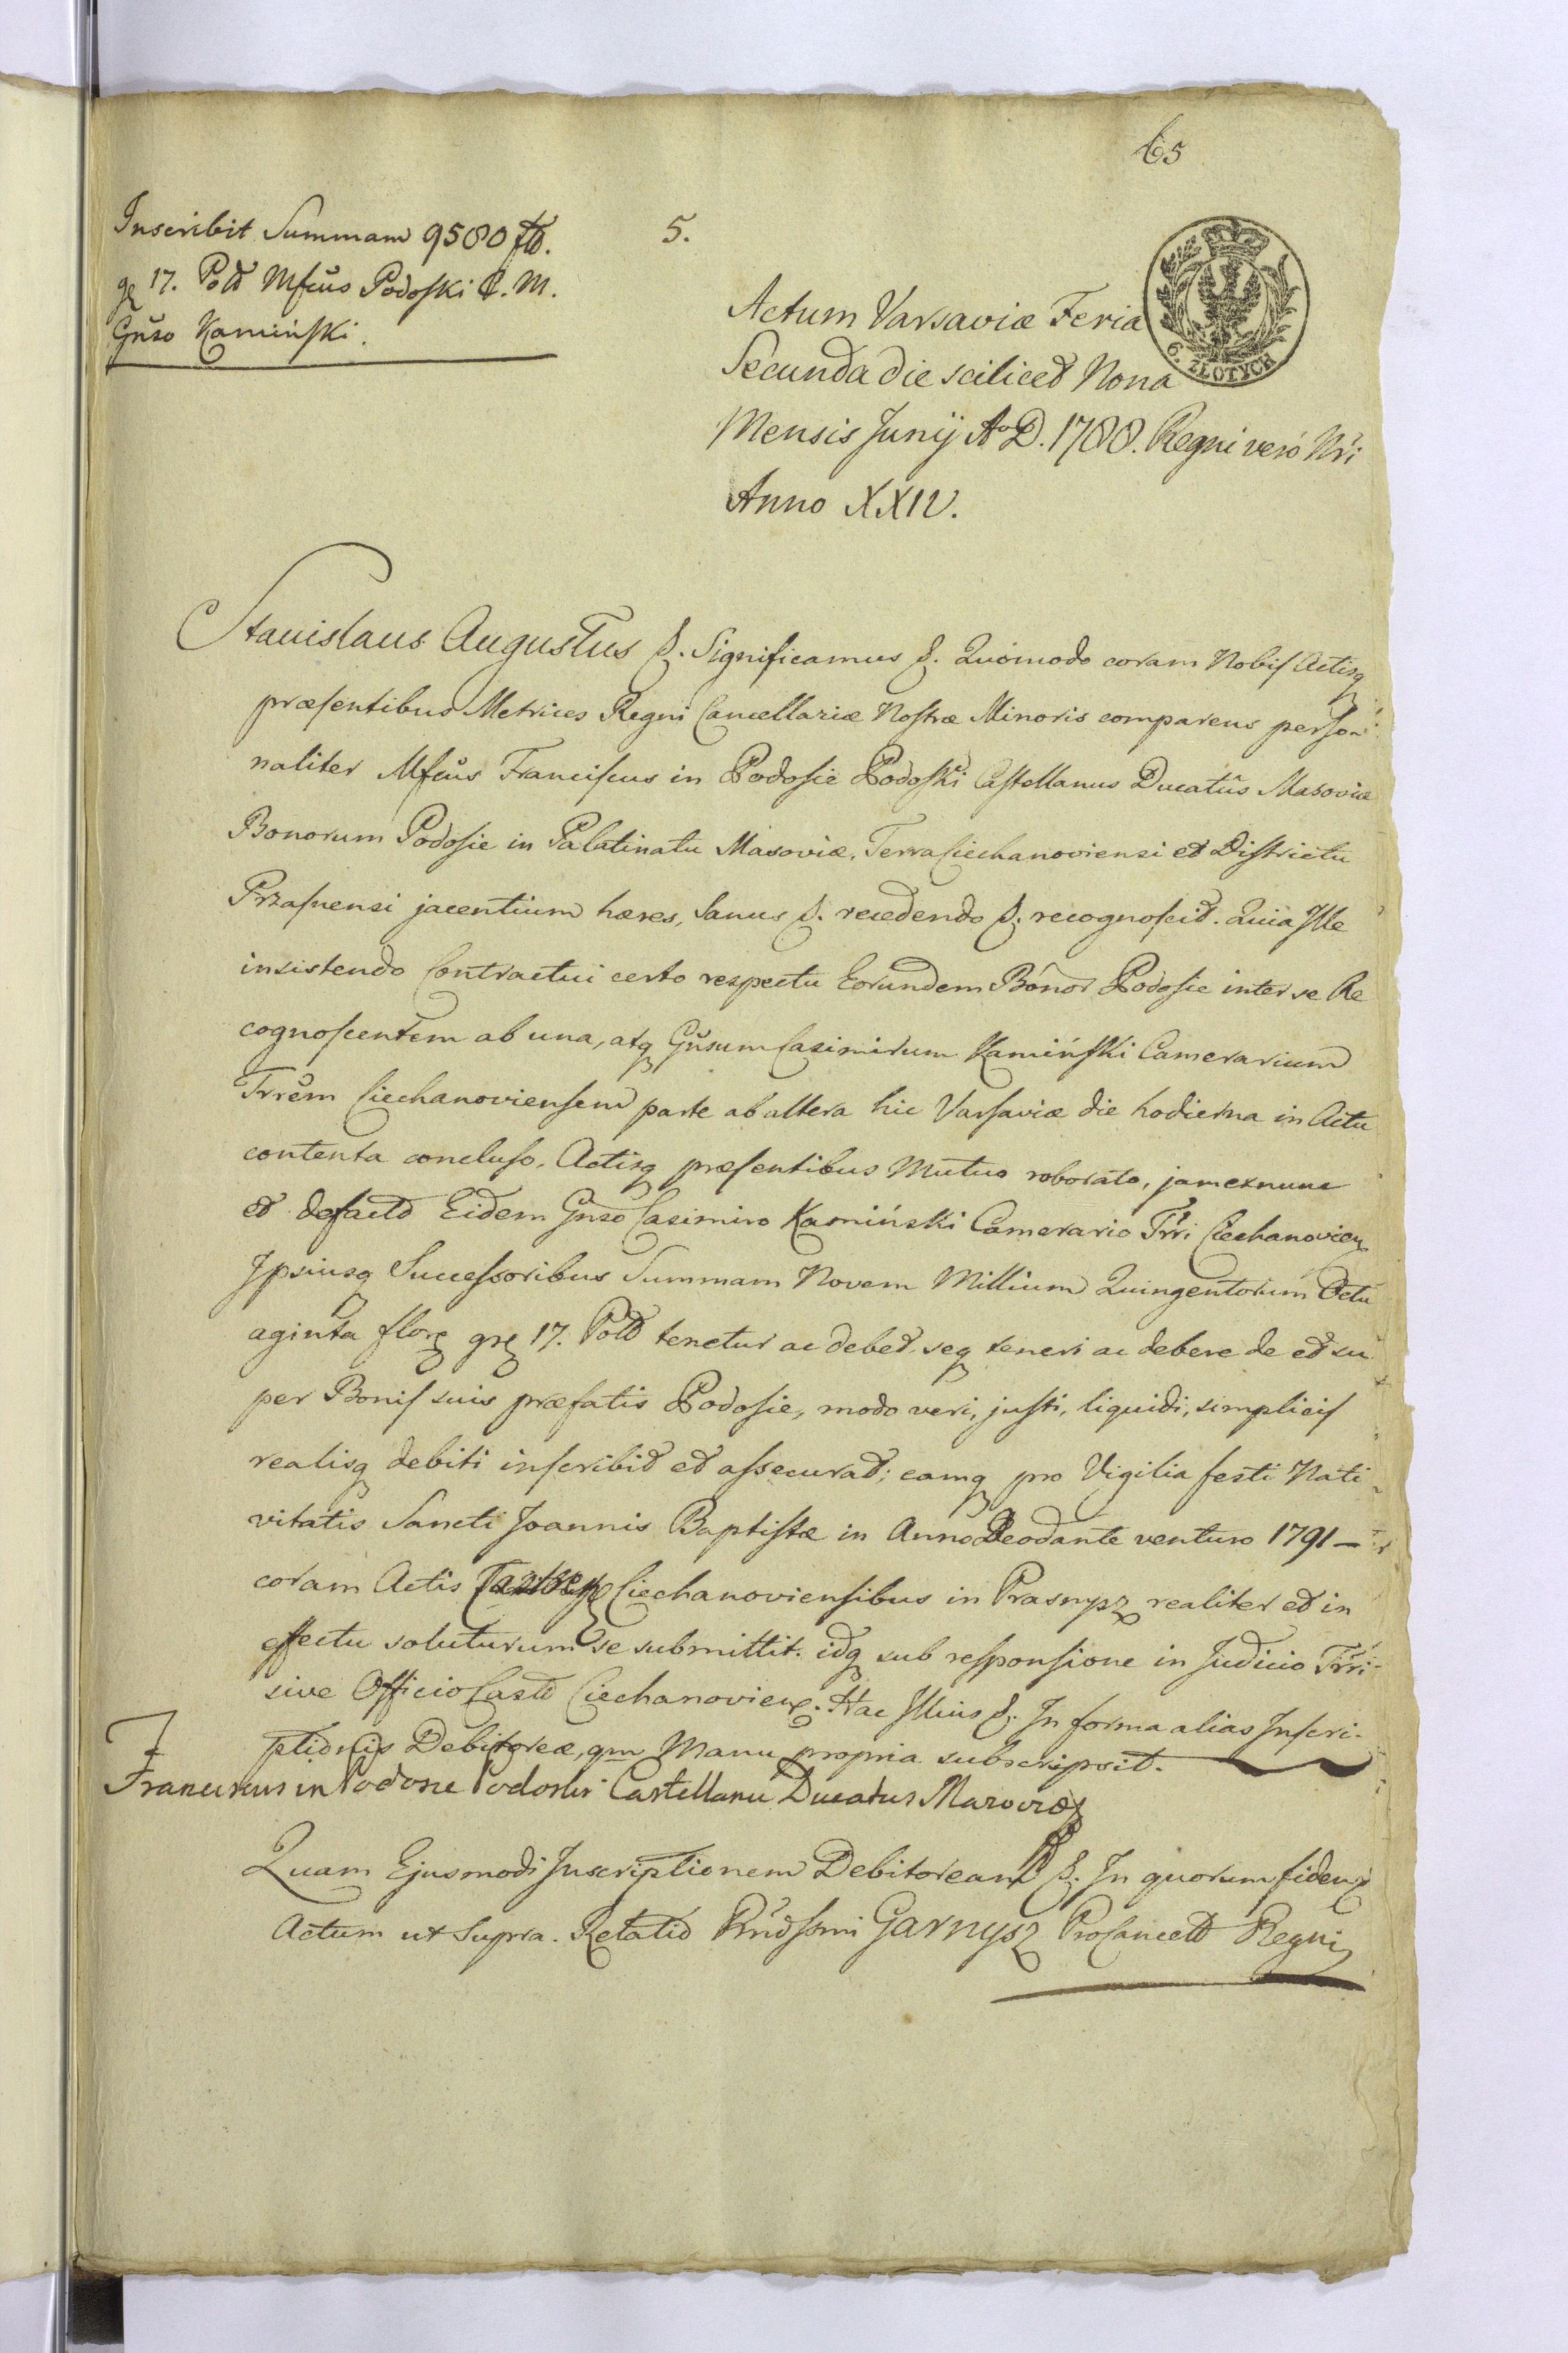 65
Inscribit Summam 9580 fld.
gr 17. Pold Mfcus Podoski C. M.
Gnso Kamiński.
5.
6. ZŁOTYCH
Actum Varsaviæ Feria
Secunda die scilicet Nona
Mensis Junij Ao D. 1788. Regni veró Nri
Anno XXIV.
Stanislaus Augustus &. Significamus &. Quómodo coram Nobis Actisq
præsentibus Metrices Regni Cancellariæ Nostræ Minoris comparens perso-
naliter Mfcus Franciscus in Podosie Podoski Castellanus Ducatûs Masoviæ
Bonorum Podosie in Palatinatu Masoviæ, Terra Ciechanoviensi et Districtu
Przasnensi jacentium hæres, Sanus &. recedendo &. recognoscit. Quia Ille
insistendo Contractui certo respectu Eorundem Bonor Podosie inter se Re
cognoscentem ab una, atq Gnsum Casimirum Kamiński Camerarium
Trrem Ciechanoviensem parte ab altera hic Varsaviæ die hodierna in Actu
contenta concluso, Actisq præsentibus Mutuo roborato, jam exnunc
et defacto Eidem Gnso Casimiro Kamiński Camerario Trri Ciechanovien
Ipsiusq Successoribus Summam Novem Millium Quingentorum Octu
aginta flor gr 17. Pold tenetur ac debet, seq teneri ac debere de et su
per Bonis suis præfatis Podosie, modo veri, justi, liquidi, simplicis
realisq debiti inscribit et assecurat; eamq pro Vigilia festi Nati-
vitatis Sancti Joannis Baptistæ in Anno Deo dante venturo 1791 —
coram Actis Castren Ciechanoviensibus in Prasnysz realiter et in
effectu soluturum se submittit. idq sub responsione in Judicio Trri-
sive Officio Castr Ciechanovien. Hac Illius &. In forma alias Inscri-
ptionis Debitoreæ, qm Manu propria subscripsit.
Franciscus in Podosie Podoski Castellanus Ducatus Mazoviæ
Quam Ejusmodi Inscriptionem Debitoream &. In quorum fidem
Actum ut Supra. Relatio Rndssmi Garnysz ProCancell Regni